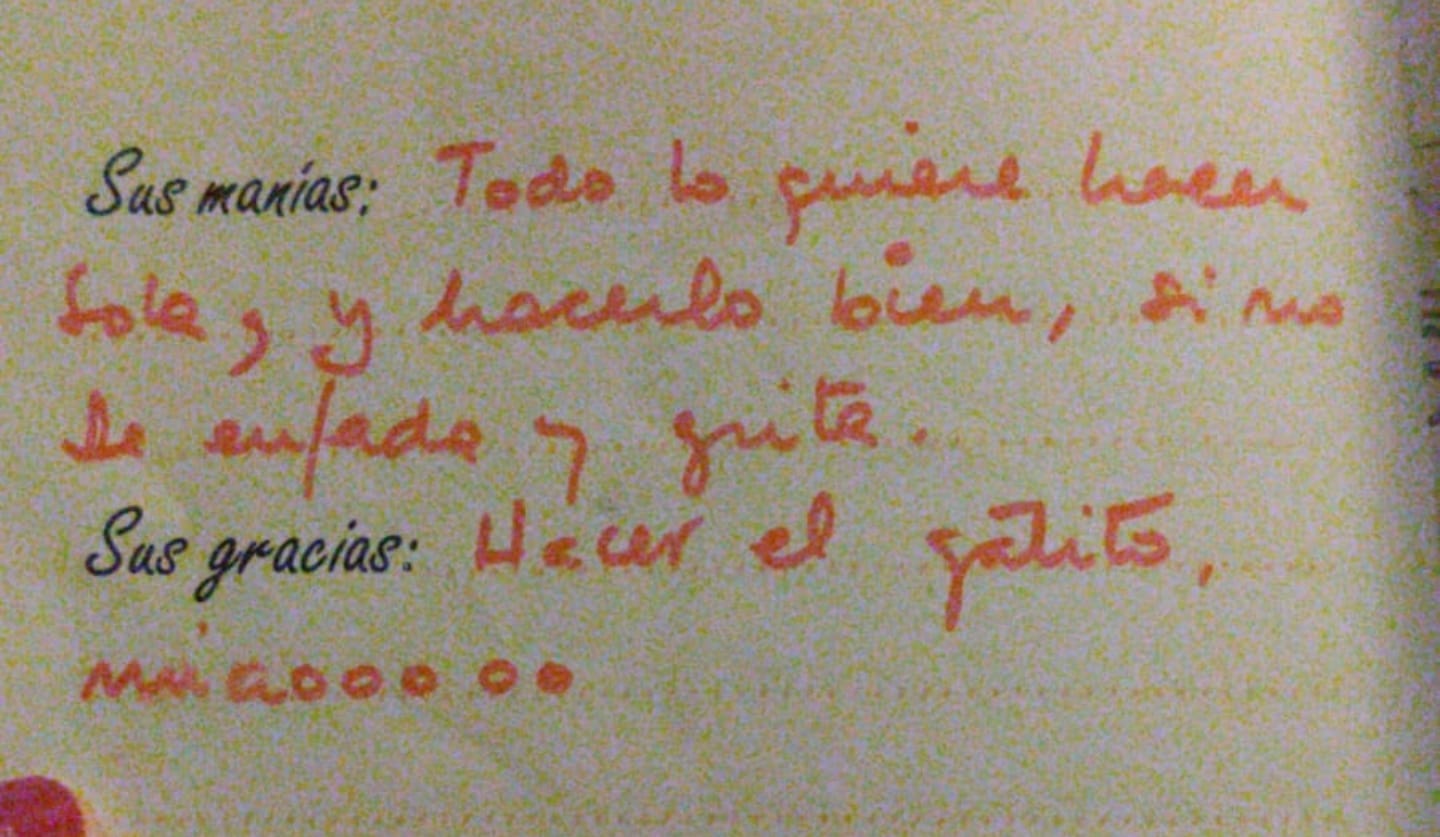 Sus manías: Todo lo quiere hacer
sola, y hacerlo bien, si no
se enfada y grita.
Sus gracias: Hacer el gatito,
miaooooo